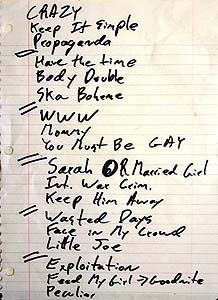 CRAZY
Keep It Simple
Propaganda
Have the time
Body Double
Ska Boheme
WWW
Mommy
You Must Be GAY
Sarah OR Married Girl
Int. War Crim.
Keep Him Away
Wasted Days
Face in My Crowd
Little Joe
Exploitation
Feed My Girl → Goodnite
Peculiar